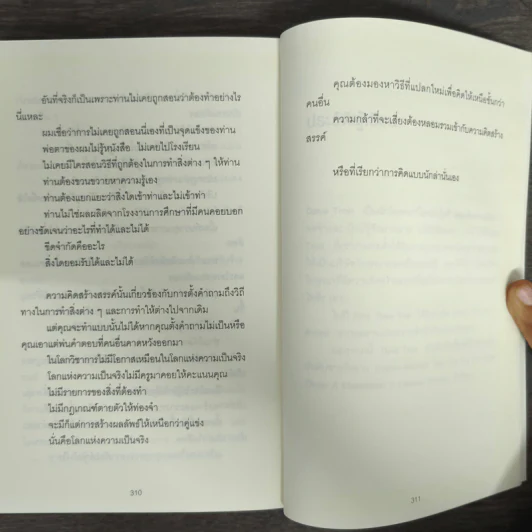 อันที่จริงก็เป็นเพราะท่านไม่เคยถูกสอนว่าต้องทำอย่างไร
นี่แหละ
ผมเชื่อว่าการไม่เคยถูกสอนนี่เองที่เป็นจุดแข็งของท่าน
พ่อตาของผมไม่รู้หนังสือ ไม่เคยไปโรงเรียน
ไม่เคยมีใครสอนวิธีที่ถูกต้องในการทำสิ่งต่าง ๆ ให้ท่าน
ท่านต้องขวนขวายหาความรู้เอง
ท่านต้องแยกแยะว่าสิ่งใดเข้าท่าและไม่เข้าท่า
ท่านไม่ใช่ผลผลิตจากโรงงานการศึกษาที่มีคนคอยบอก
อย่างชัดเจนว่าอะไรที่ทำได้และไม่ได้
ขีดจำกัดคืออะไร
สิ่งใดยอมรับได้และไม่ได้
ความคิดสร้างสรรค์นั้นเกี่ยวข้องกับการตั้งคำถามถึงวิถี
ทางในการทำสิ่งต่าง ๆ และการทำให้ต่างไปจากเดิม
แต่คุณจะทำแบบนั้นไม่ได้หากคุณตั้งคำถามไม่เป็นหรือ
คุณเอาแต่พ่นคำตอบที่คนอื่นคาดหวังออกมา
ในโลกวิชาการไม่มีโอกาสเหมือนในโลกแห่งความเป็นจริง
โลกแห่งความเป็นจริงไม่มีครูมาคอยให้คะแนนคุณ
ไม่มีรายการของสิ่งที่ต้องทำ
ไม่มีกฎเกณฑ์ตายตัวให้ท่องจำ
จะมีก็แต่การสร้างผลลัพธ์ให้เหนือกว่าคู่แข่ง
นั่นคือโลกแห่งความเป็นจริง
310
คุณต้องมองหาวิธีที่แปลกใหม่เพื่อคิดให้เหนือชั้นกว่า
คนอื่น
ความกล้าที่จะเสี่ยงต้องหลอมรวมเข้ากับความคิดสร้าง
สรรค์
หรือที่เรียกว่าการคิดแบบนักล่านั่นเอง
311